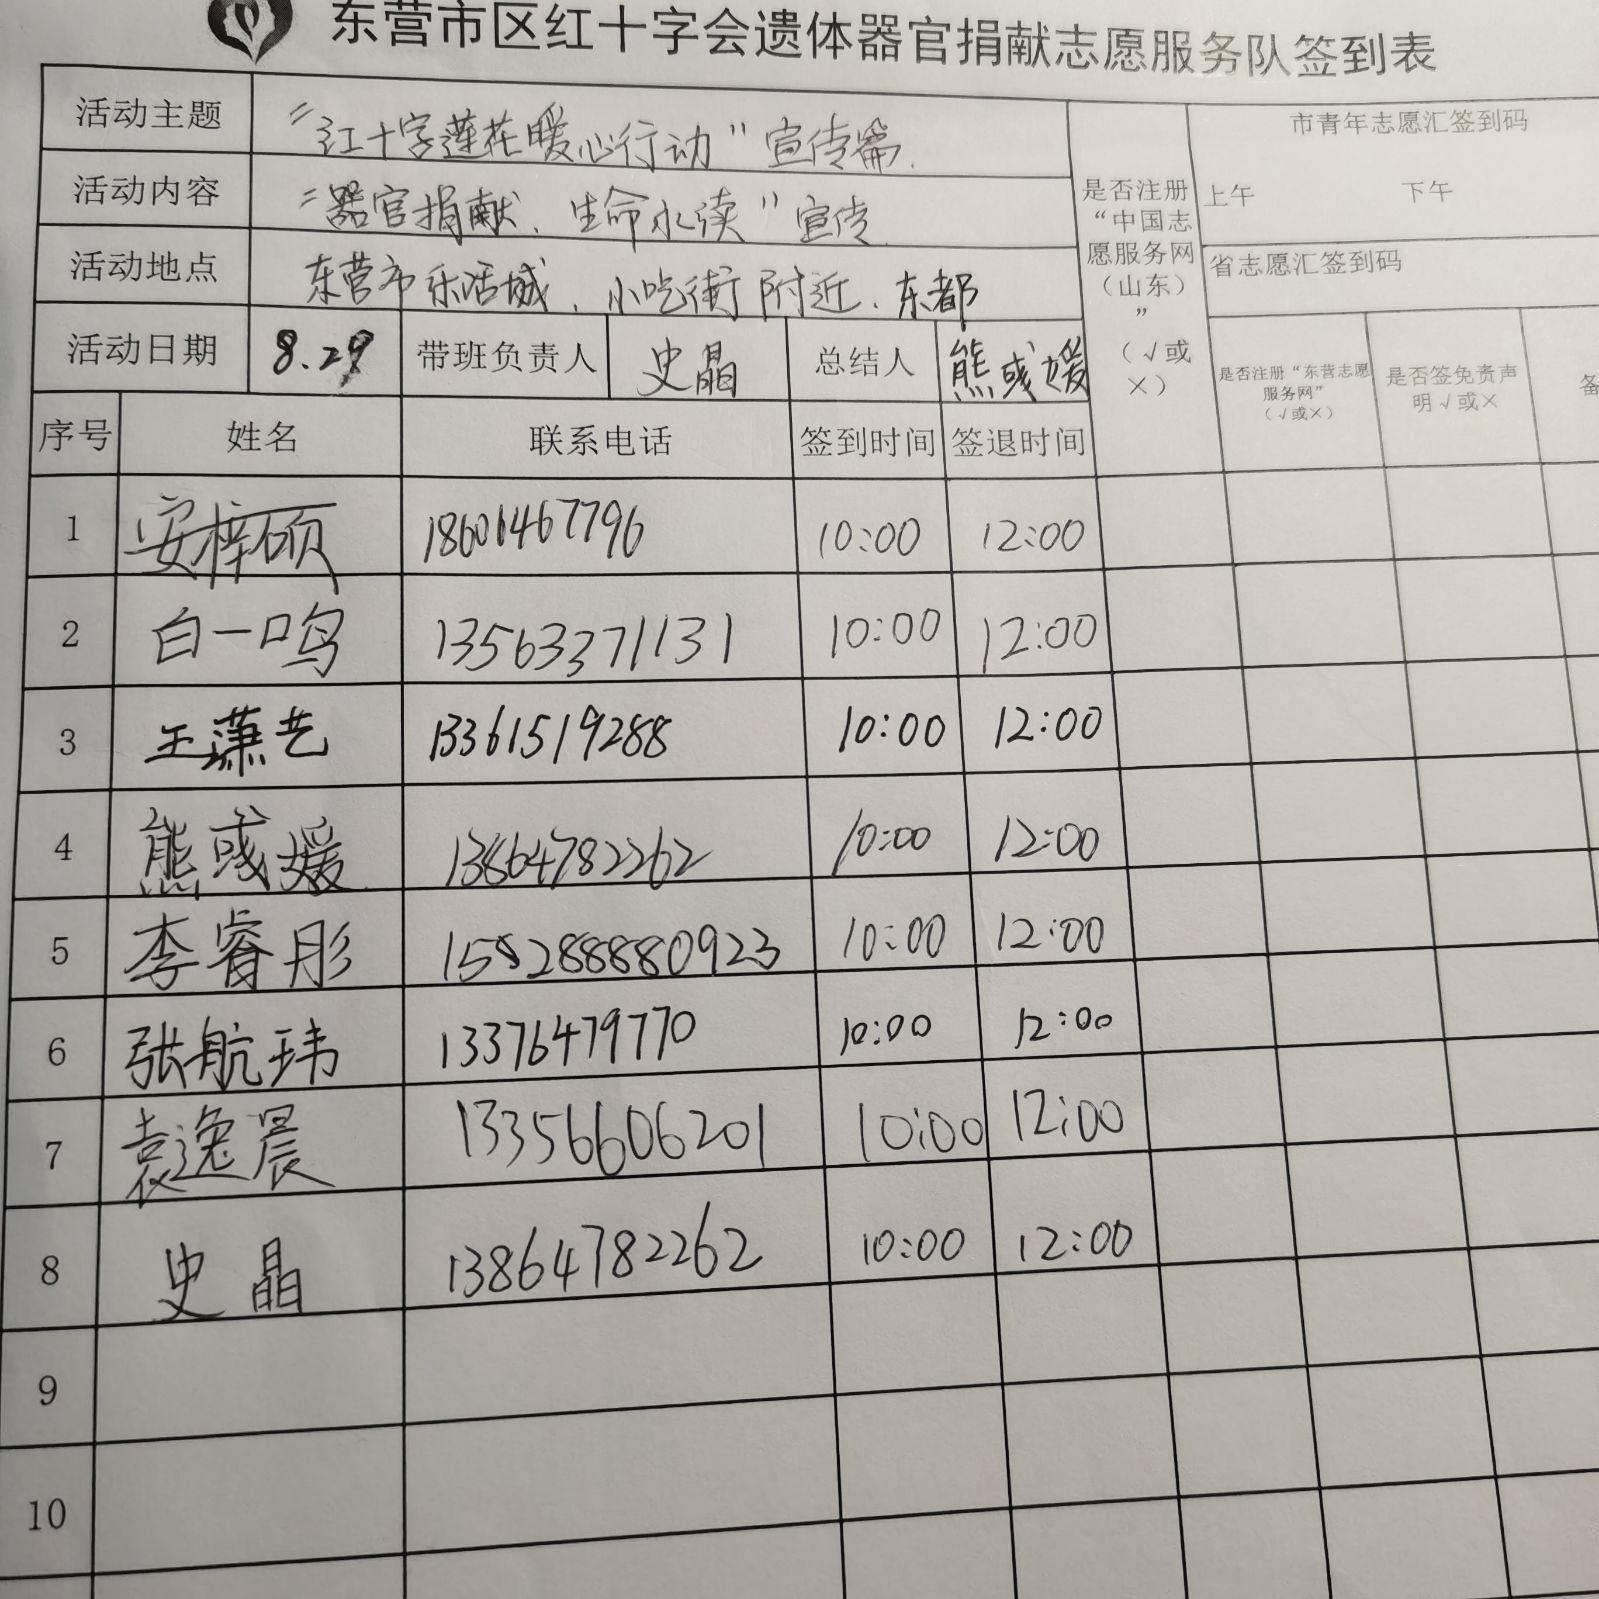 东营市区红十字会遗体器官捐献志愿服务队签到表
活动主题 “红十字莲花暖心行动”宣传篇. 是否注册“中国志愿服务网（山东）”（√或×） 市青年志愿汇签到码
上午 下午
活动内容 “器官捐献、生命永读”宣传
省志愿汇签到码
活动地点 东营市乐活城、小吃街附近、东都
活动日期 8.29 带班负责人 史晶 总结人 熊彧媛 是否注册“东营志愿服务网”（√或×） 是否签免责声明√或×
序号 姓名 联系电话 签到时间 签退时间
1 安梓硕 18601467796 10:00 12:00
2 白一鸣 13563371131 10:00 12:00
3 王薕艺 13361519288 10:00 12:00
4 熊彧媛 13864782262 10:00 12:00
5 李睿彤 10:00 12:00
6 张航玮 13376479770 10:00 12:00
7 袁逸晨 13356606201 10:00 12:00
8 史晶 13864782262 10:00 12:00
9
10